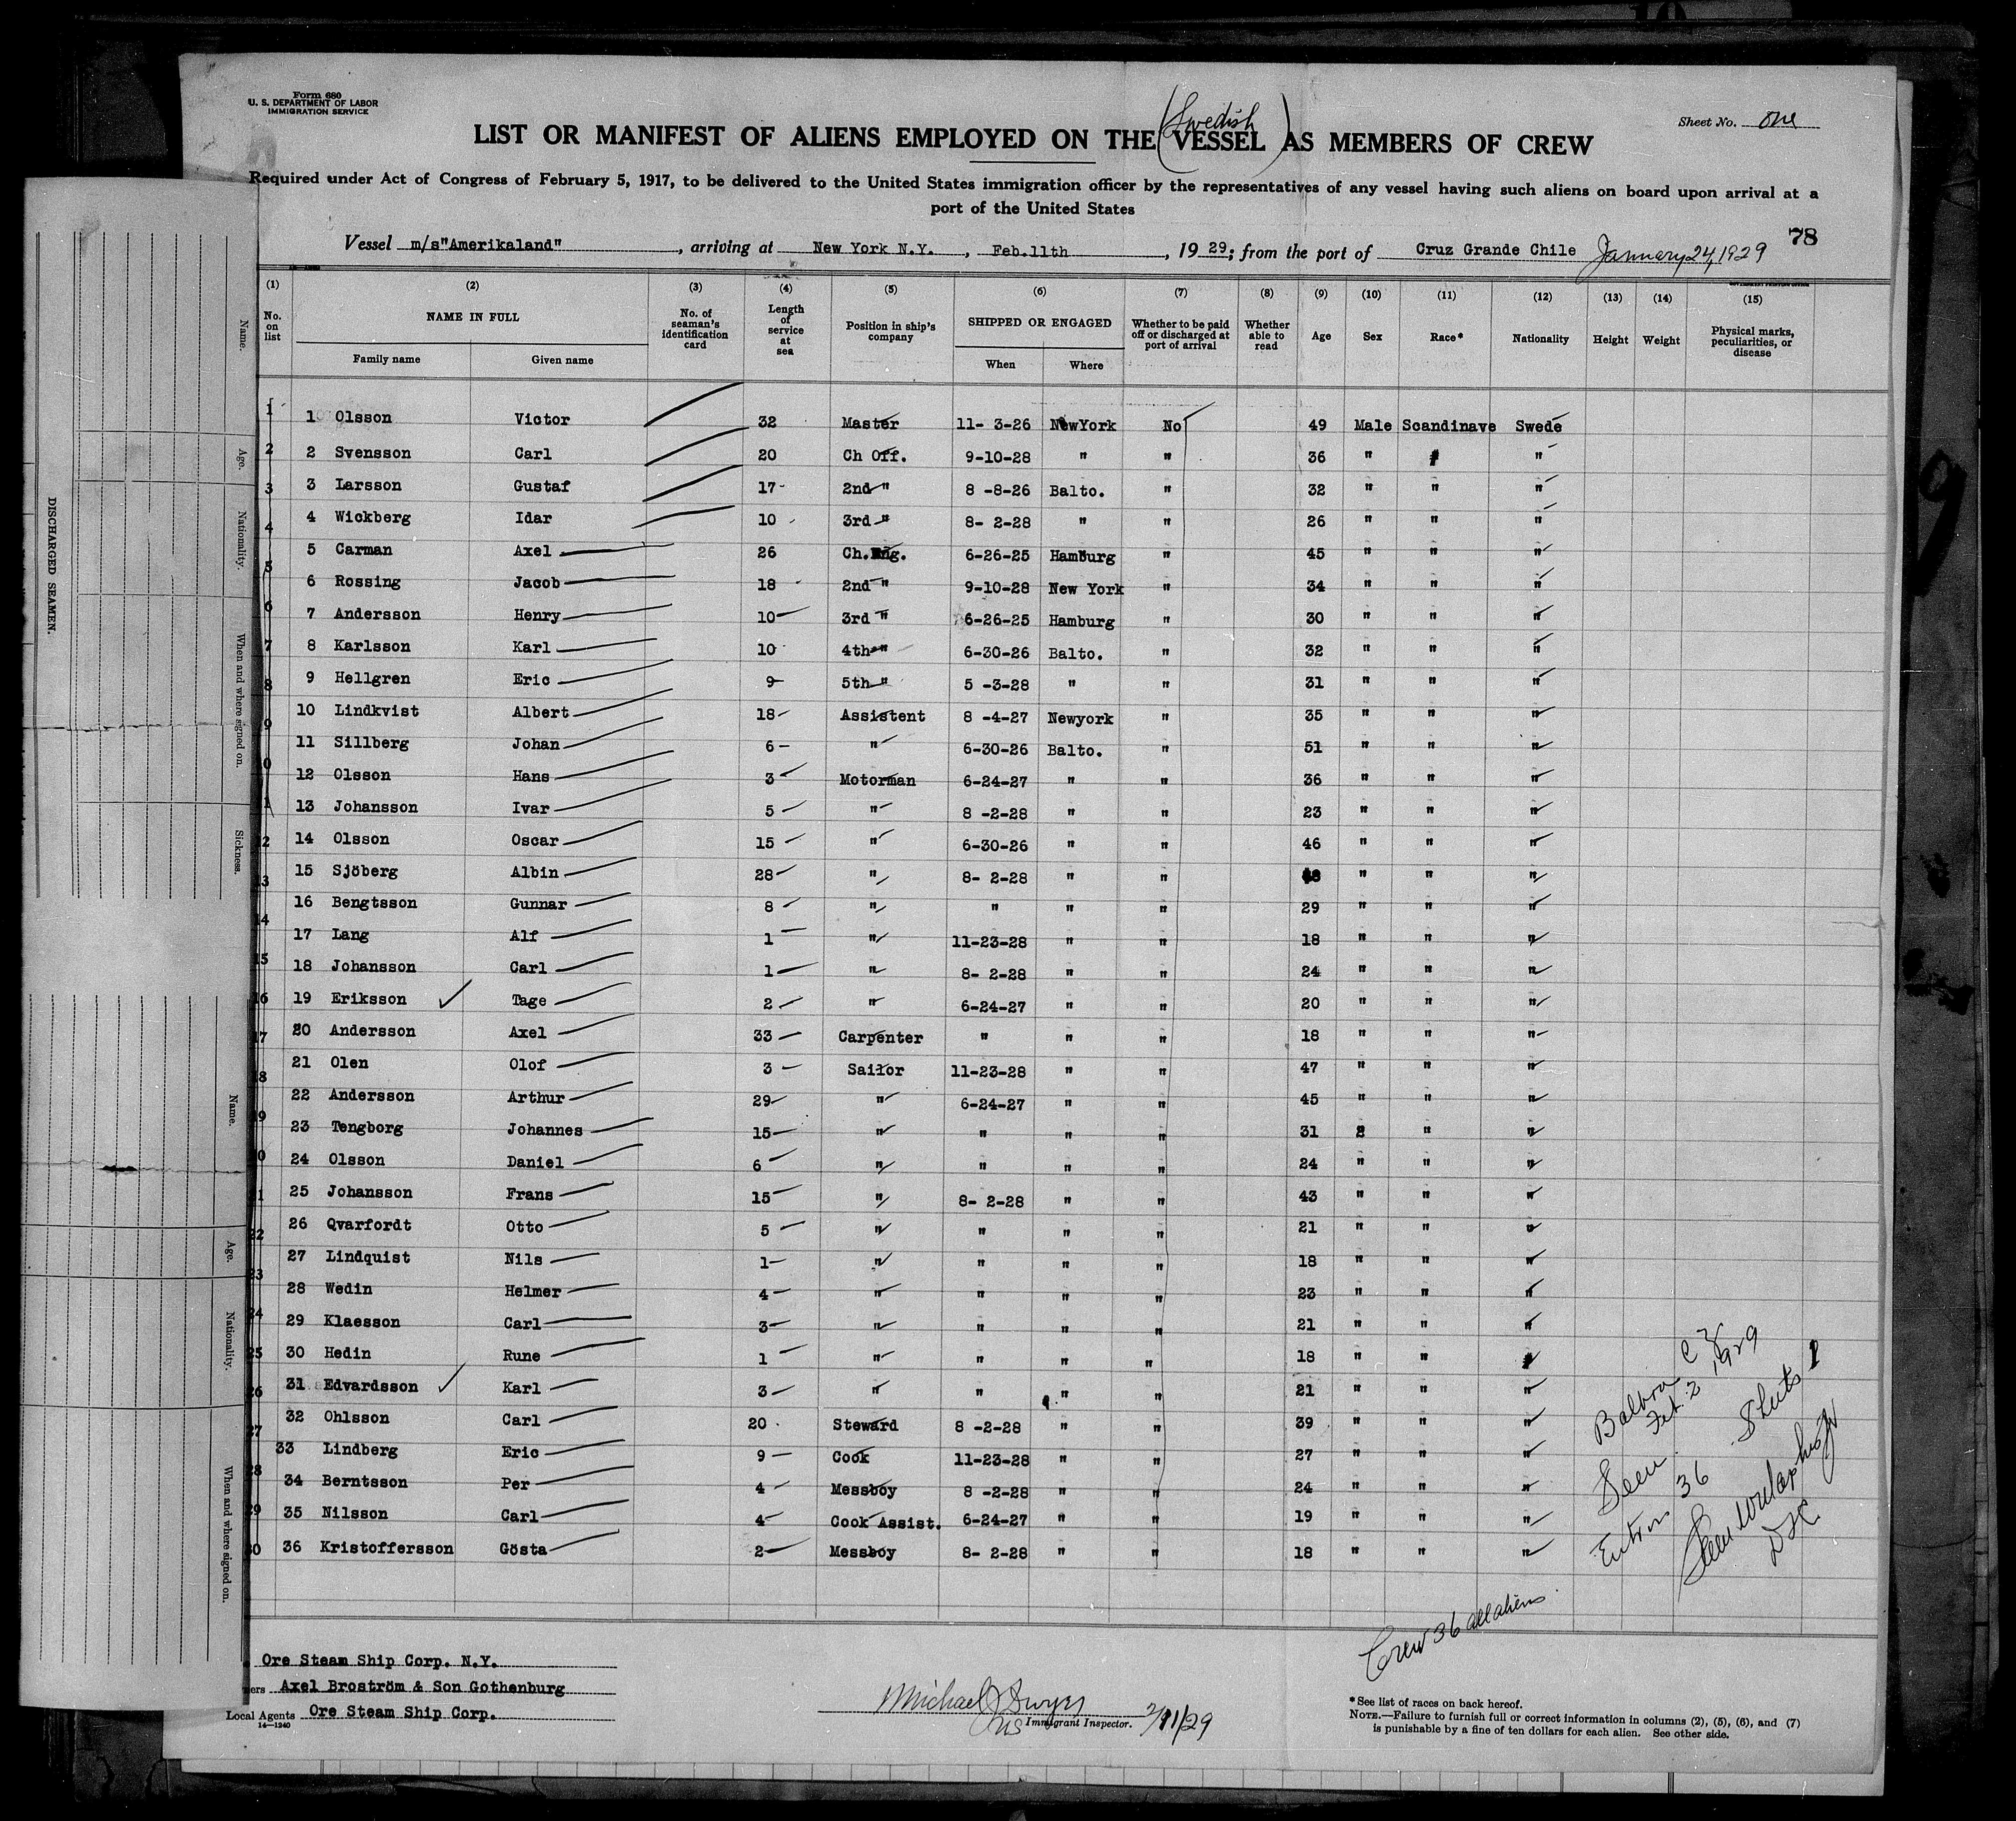 Form 680
U. S. DEPARTMENT OF LABOR
IMMIGRATION SERVICE
Sheet No. One
(Swedish)
LIST OR MANIFEST OF ALIENS EMPLOYED ON THE VESSEL AS MEMBERS OF CREW
Required under Act of Congress of February 5, 1917, to be delivered to the United States immigration officer by the representatives of any vessel having such aliens on board upon arrival at a
port of the United States
78
Vessel m/s"Amerikaland", arriving at New York N.Y., Feb.11th, 1929; from the port of Cruz Grande Chile January 24, 1929
(1) (2) (3) (4) (5) (6) (7) (8) (9) (10) (11) (12) (13) (14) (15)
No. on list NAME IN FULL Family name Given name No. of seaman's identification card Length of service at sea Position in ship's company SHIPPED OR ENGAGED When Where Whether to be paid off or discharged at port of arrival Whether able to read Age Sex Race* Nationality Height Weight Physical marks, peculiarities, or disease
1 Olsson Victor 32 Master 11- 3-26 NewYork No 49 Male Scandinave Swede
2 Svensson Carl 20 Ch Off. 9-10-28 " " 36 " " "
3 Larsson Gustaf 17 2nd " 8 -8-26 Balto. " 32 " " "
4 Wickberg Idar 10 3rd " 8- 2-28 " " 26 " " "
5 Carman Axel 26 Ch.Eng. 6-26-25 Hamburg " 45 " " "
6 Rossing Jacob 18 2nd " 9-10-28 New York " 34 " " "
7 Andersson Henry 10 3rd " 6-26-25 Hamburg " 30 " " "
8 Karlsson Karl 10 4th " 6-30-26 Balto. " 32 " " "
9 Hellgren Eric 9 5th " 5 -3-28 " " 31 " " "
10 Lindkvist Albert 18 Assistent 8 -4-27 Newyork " 35 " " "
11 Sillberg Johan 6 " 6-30-26 Balto. " 51 " " "
12 Olsson Hans 3 Motorman 6-24-27 " " 36 " " "
13 Johansson Ivar 5 " 8 -2-28 " " 23 " " "
14 Olsson Oscar 15 " 6-30-26 " " 46 " " "
15 Sjöberg Albin 28 " 8- 2-28 " " " " "
16 Bengtsson Gunnar 8 " " " " 29 " " "
17 Lang Alf 1 " 11-23-28 " " 18 " " "
18 Johansson Carl 1 " 8- 2-28 " " 24 " " "
19 Eriksson Tage 2 " 6-24-27 " " 20 " " "
20 Andersson Axel 33 Carpenter " " " 18 " " "
21 Olen Olof 3 Sailor 11-23-28 " " 47 " " "
22 Andersson Arthur 29 " 6-24-27 " " 45 " " "
23 Tengborg Johannes 15 " " " " 31 " " "
24 Olsson Daniel 6 " " " " 24 " " "
25 Johansson Frans 15 " 8- 2-28 " " 43 " " "
26 Qvarfordt Otto 5 " " " " 21 " " "
27 Lindquist Nils 1 " " " " 18 " " "
28 Wedin Helmer 4 " " " " 23 " " "
29 Klaesson Carl 3 " " " " 21 " " "
30 Hedin Rune 1 " " " " 18 " " "
31 Edvardsson Karl 3 " " " " 21 " " "
32 Ohlsson Carl 20 Steward 8 -2-28 " " 39 " " "
33 Lindberg Eric 9 Cook 11-23-28 " " 27 " " "
34 Berntsson Per 4 Messboy 8 -2-28 " " 24 " " "
35 Nilsson Carl 4 Cook Assist. 6-24-27 " " 19 " " "
36 Kristoffersson Gösta 2 Messboy 8- 2-28 " " 18 " " "
Balboa C Z
Feb. 2 1929
Seen Sheets 1
Entries 36
Crew 36 all aliens
Ore Steam Ship Corp. N.Y.
Axel Broström & Son Gothenburg
Local Agents Ore Steam Ship Corp.
14—1240
Michael J Dwyer
Immigrant Inspector. 2/11/29
* See list of races on back hereof.
NOTE.—Failure to furnish full or correct information in columns (2), (5), (6), and (7)
is punishable by a fine of ten dollars for each alien. See other side.
DISCHARGED SEAMEN.
Name.
Age.
Nationality.
When and where signed on.
Sickness.
Name.
Age.
Nationality.
When and where signed on.